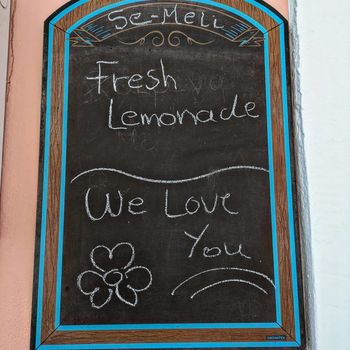 Se-Meli
Fresh
Lemonade
We Love
You